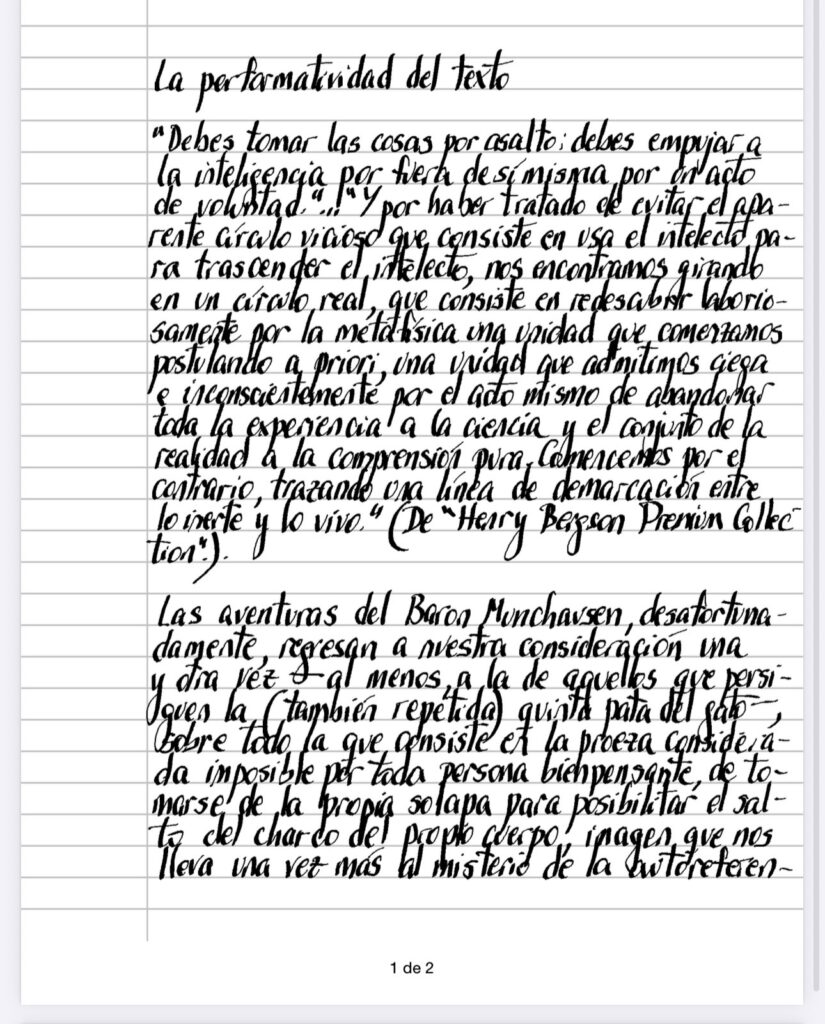 La performatividad del texto
"Debes tomar las cosas por asalto; debes empujar a
la inteligencia por fuera de sí misma por un acto
de voluntad."..."Y por haber tratado de evitar el apa-
rente círculo vicioso que consiste en usa el intelecto pa-
ra trascender el intelecto, nos encontramos girando
en un círculo real, que consiste en redescubrir laborio-
samente por la metafísica una unidad que comenzamos
postulando a priori, una unidad que admitimos ciega
e inconscientemente por el acto mismo de abandonar
toda la experiencia a la ciencia y el conjunto de la
realidad a la comprensión pura. Comencemos por el
contrario, trazando una línea de demarcación entre
lo inerte y lo vivo." (De "Henry Bergson Premium Collec-
tion".).
Las aventuras del Baron Munchausen, desafortuna-
damente, regresan a nuestra consideración una
y otra vez —al menos, a la de aquellos que persi-
guen la (también repetida) quinta pata del gato—,
sobre todo la que consiste en la proeza considera-
da imposible por toda persona bienpensante, de to-
marse de la propia solapa para posibilitar el sal-
to del charco del propio cuerpo, imagen que nos
lleva una vez más al misterio de la autoreferen-
1 de 2